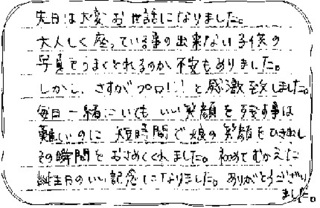 先日は大変お世話になりました。
大人しく座っている事の出来ない子供の
写真をうまくとれるのか不安もありました。
しかし、さすがプロ!!と感激致しました。
毎日一緒にいてもいい笑顔を残す事は
難しいのに短時間で娘の笑顔をひき出し
その瞬間をおさめてくれました。初めてむかえた
誕生日のいい記念になりました。ありがとうござい
ました。